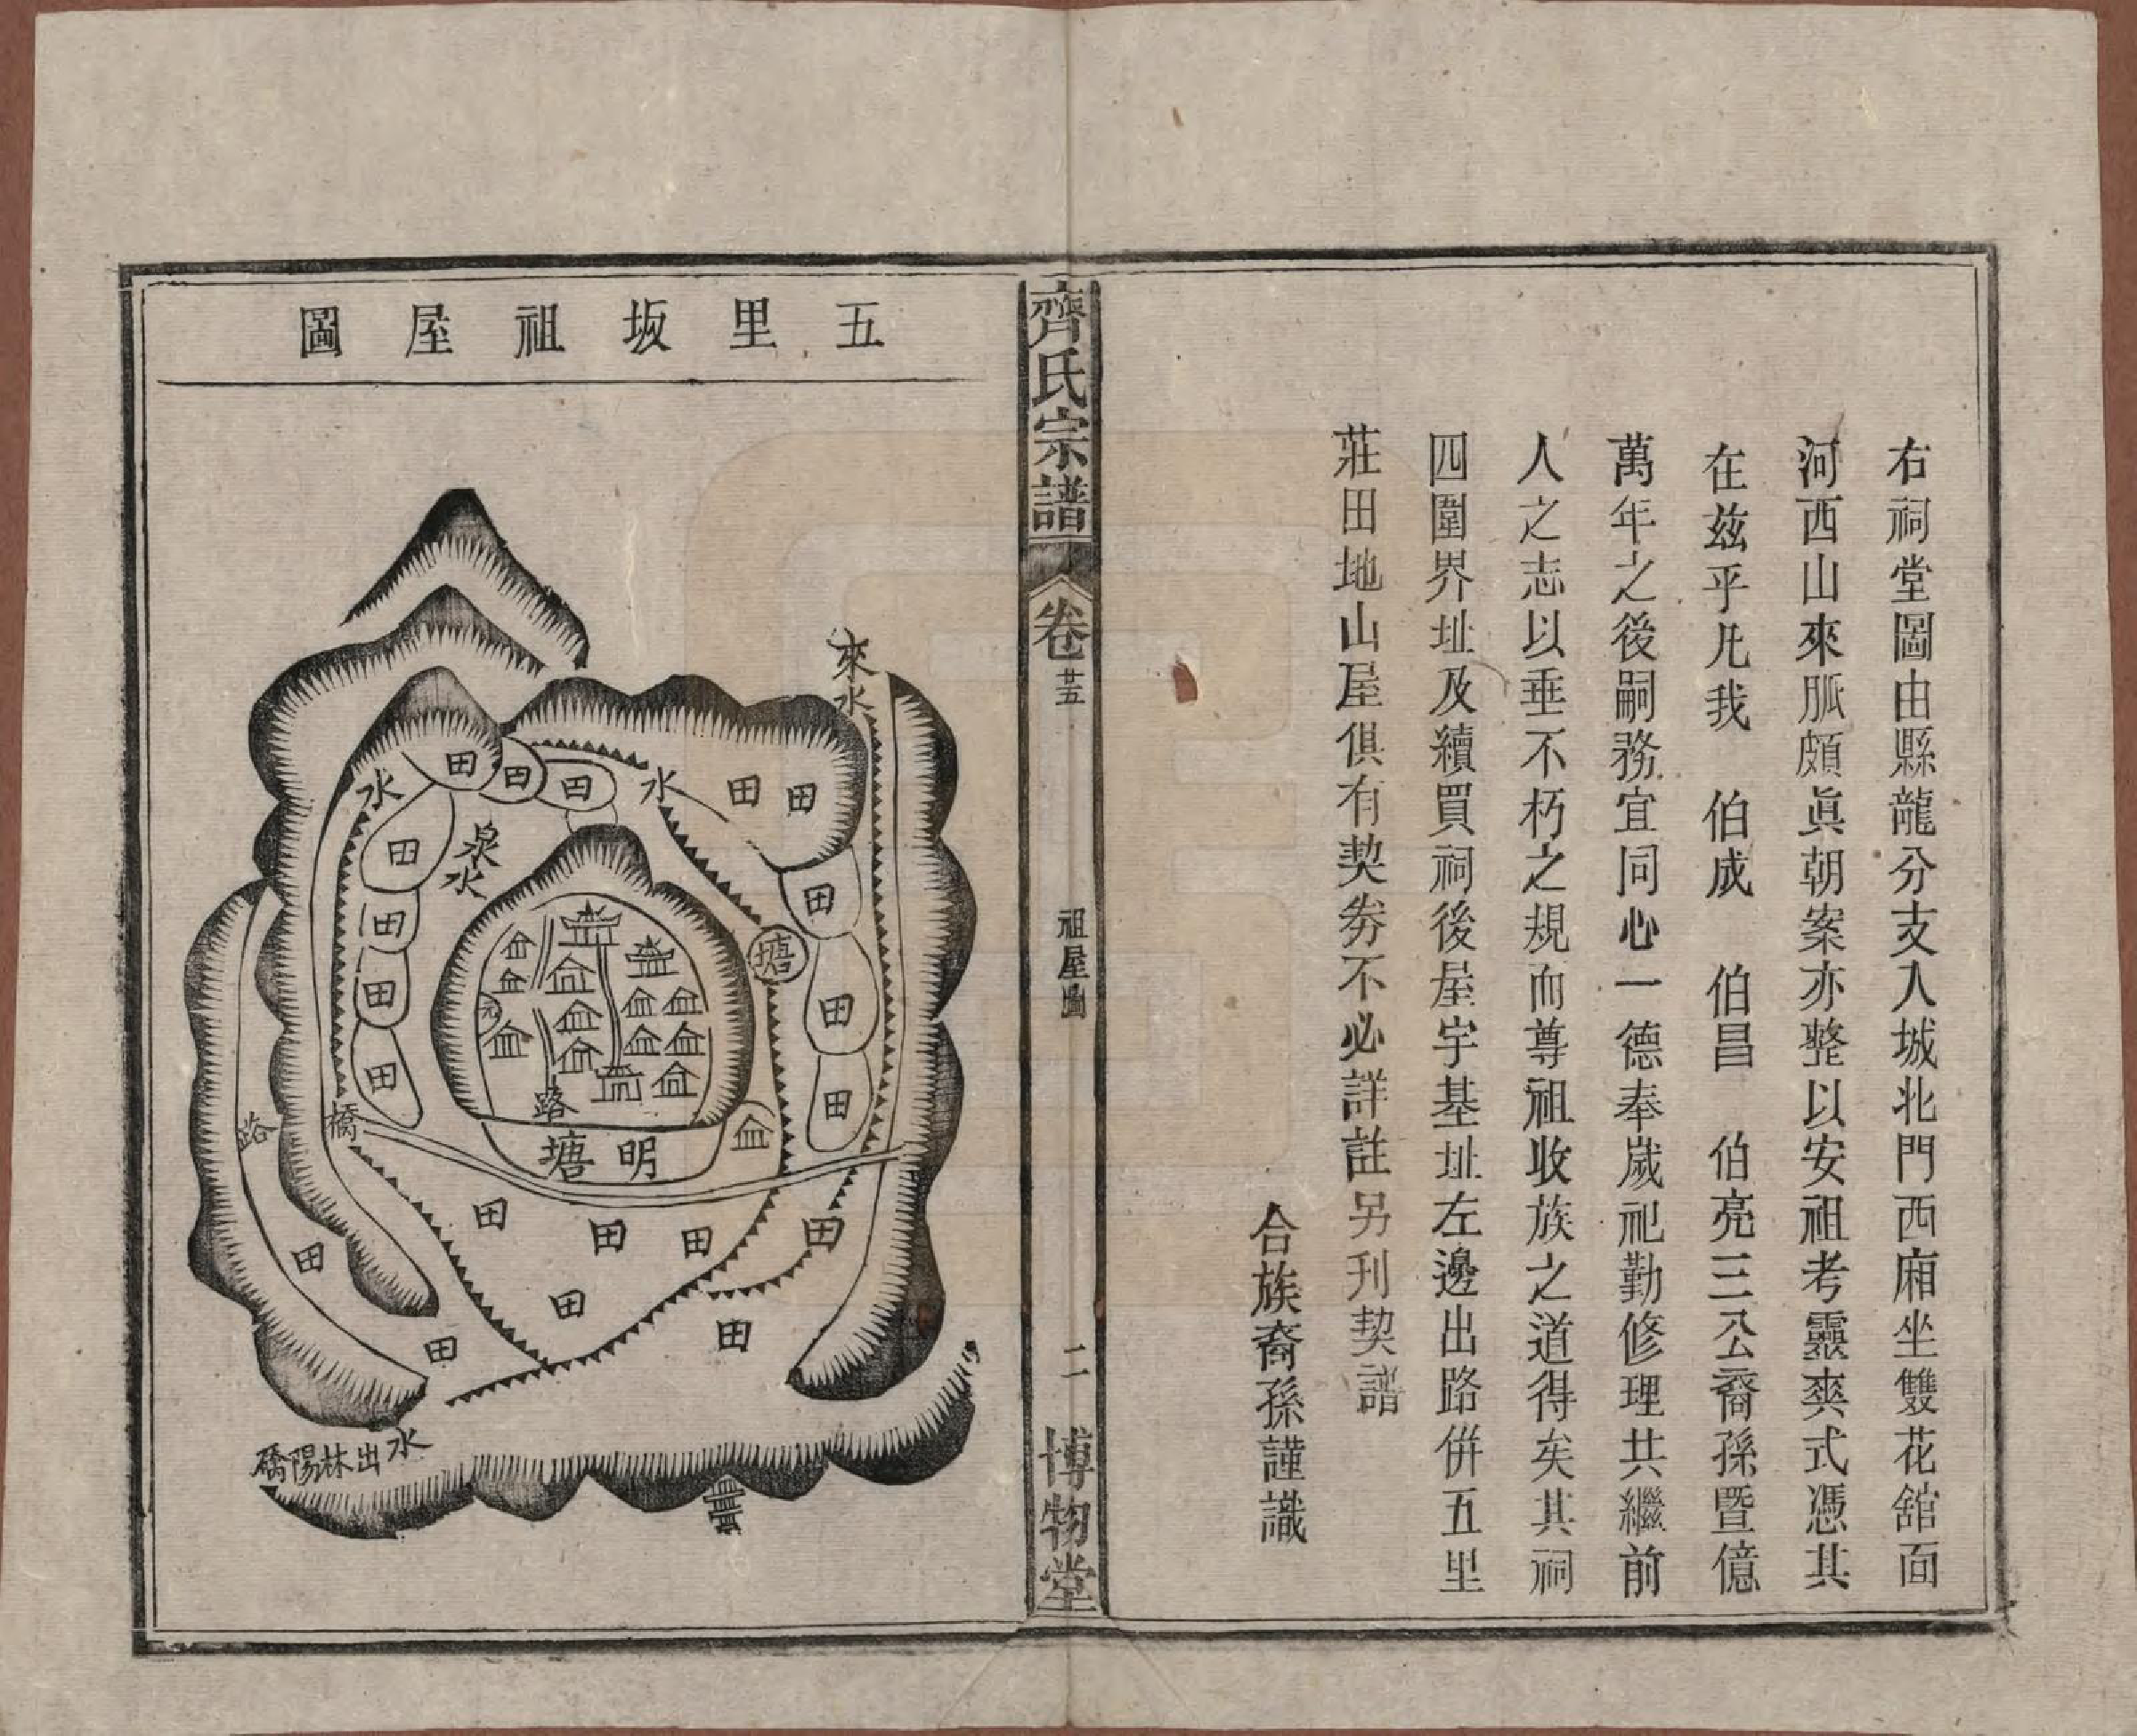 右祠堂圖由縣龍分支入城北門西廂坐雙花舘面
河西山來脈頗眞朝案亦整以安祖考靈爽式憑其
在茲乎凡我　伯成　伯昌　伯亮三公裔孫暨億
萬年之後嗣務宜同心一德奉歲祀勤修理共繼前
人之志以垂不朽之規而尊祖收族之道得矣其祠
四圍界址及續買祠後屋宇基址左邊出路併五里
莊田地山屋俱有契券不必詳註另刊契譜
合族裔孫謹識
齊氏宗譜
卷廿五
祖屋圖
二
博物堂
五里坂祖屋圖
來水
水
水
泉水
田
田
田
田
田
田
田
田
田
田
田
田
田
塘
路
橋
路
明塘
田
田
田
田
田
田
田
田
水
出林陽橋